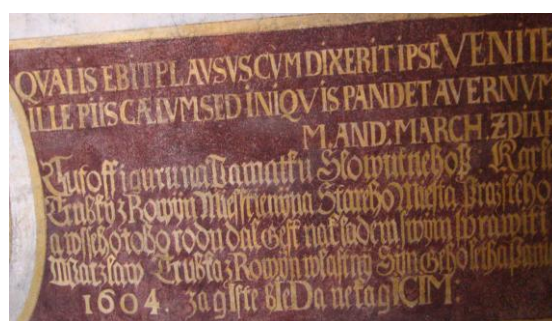 QVALIS EBIT PLAVSVS CVM DIXERIT IPSE VENITE
ILLE PIIS CÆLVM SED INIQVIS PANDET AVERNVM
M. AND: MARCH. ZDIAR
Tuto ffiguru na Pamatku Slowutneho P. Karla
Trubky z Rowyn Miesstienyna Stareho Miesta Prazskeho
a wsseho toho rodu dal gest nakladem swym sprawiti
Waczlaw Trubka z Rowyn wlastny Syn Geho
1604.